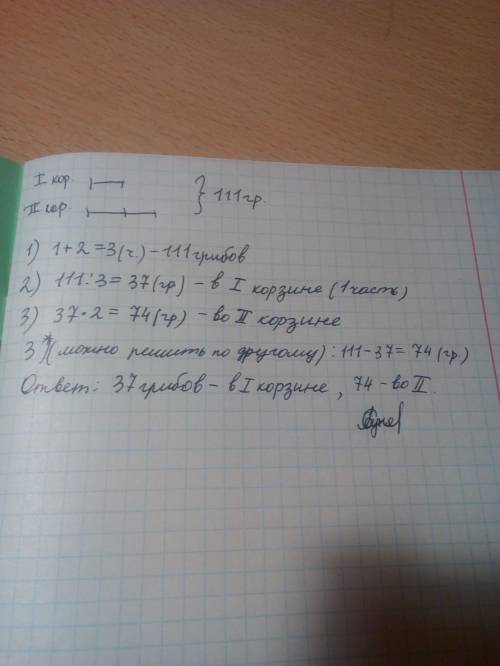 I кор.
II кор. } 111 гр.
1) 1+2=3 (ч.) – 111 грибов
2) 111:3=37 (гр) – в I корзине (1 часть)
3) 37·2=74 (гр) – во II корзине
3*) (можно решить по другому): 111-37=74 (гр.)
Ответ: 37 грибов – в I корзине, 74 – во II.